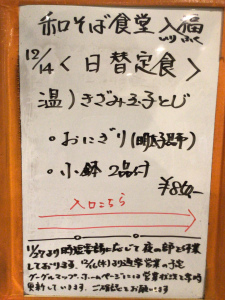 和そば食堂 入福
12/14 < 日替定食 >
温) きざみ玉子とじ
・おにぎり(明太子昆布)
・小鉢 2品付
¥860-
入口こちら
11/27より時短営業に応じて夜の部を休業
しております。12/16(水)より通常営業の予定
グーグルマップ・ホームページには営業状況を常時
更新しています。ご確認をお願います